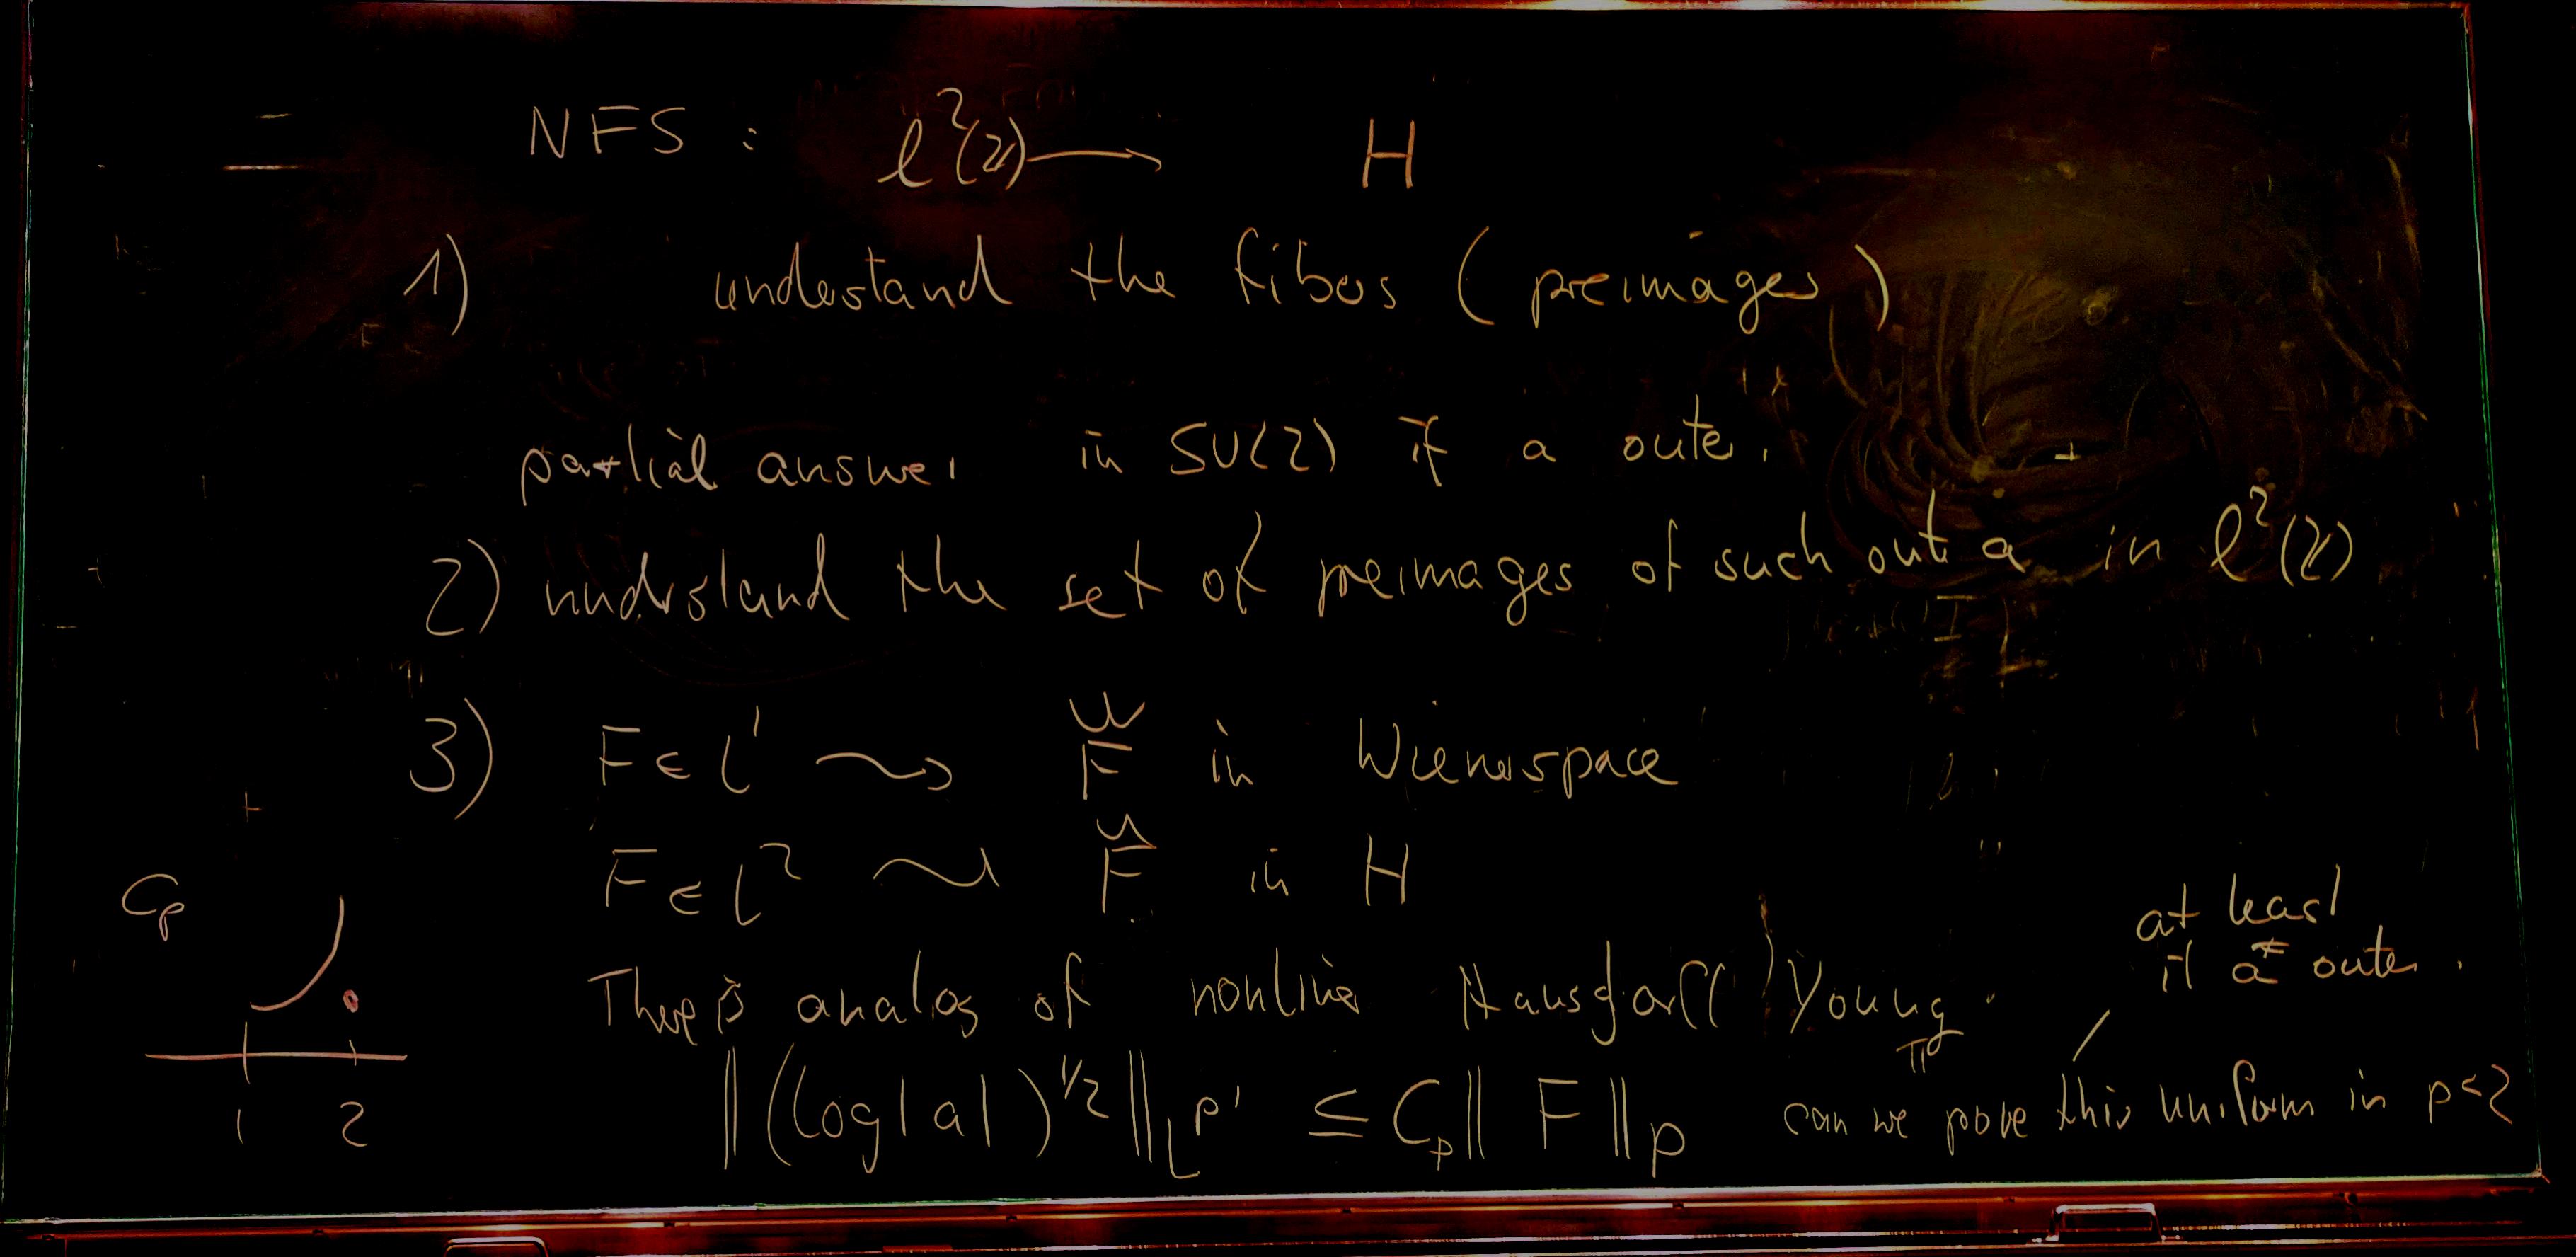 NFS : ℓ²(ℤ) ⟶ H
1) understand the fibers (preimages)
partial answer in SU(2) if a outer.
2) understand the set of preimages of such outer a in ℓ²(ℤ)
3) F ∈ ℓ¹ ⤳ F̆ in Wienerspace
F ∈ ℓ² ⤳ F̆ in H
There is analog of nonlinear Hausdorff Young.
‖(log|a|)^{1/2}‖_{L^{p'}} ≤ C_p ‖F‖_p can we prove this uniform in p<2
at least
if a* outer.
C_p
1 2